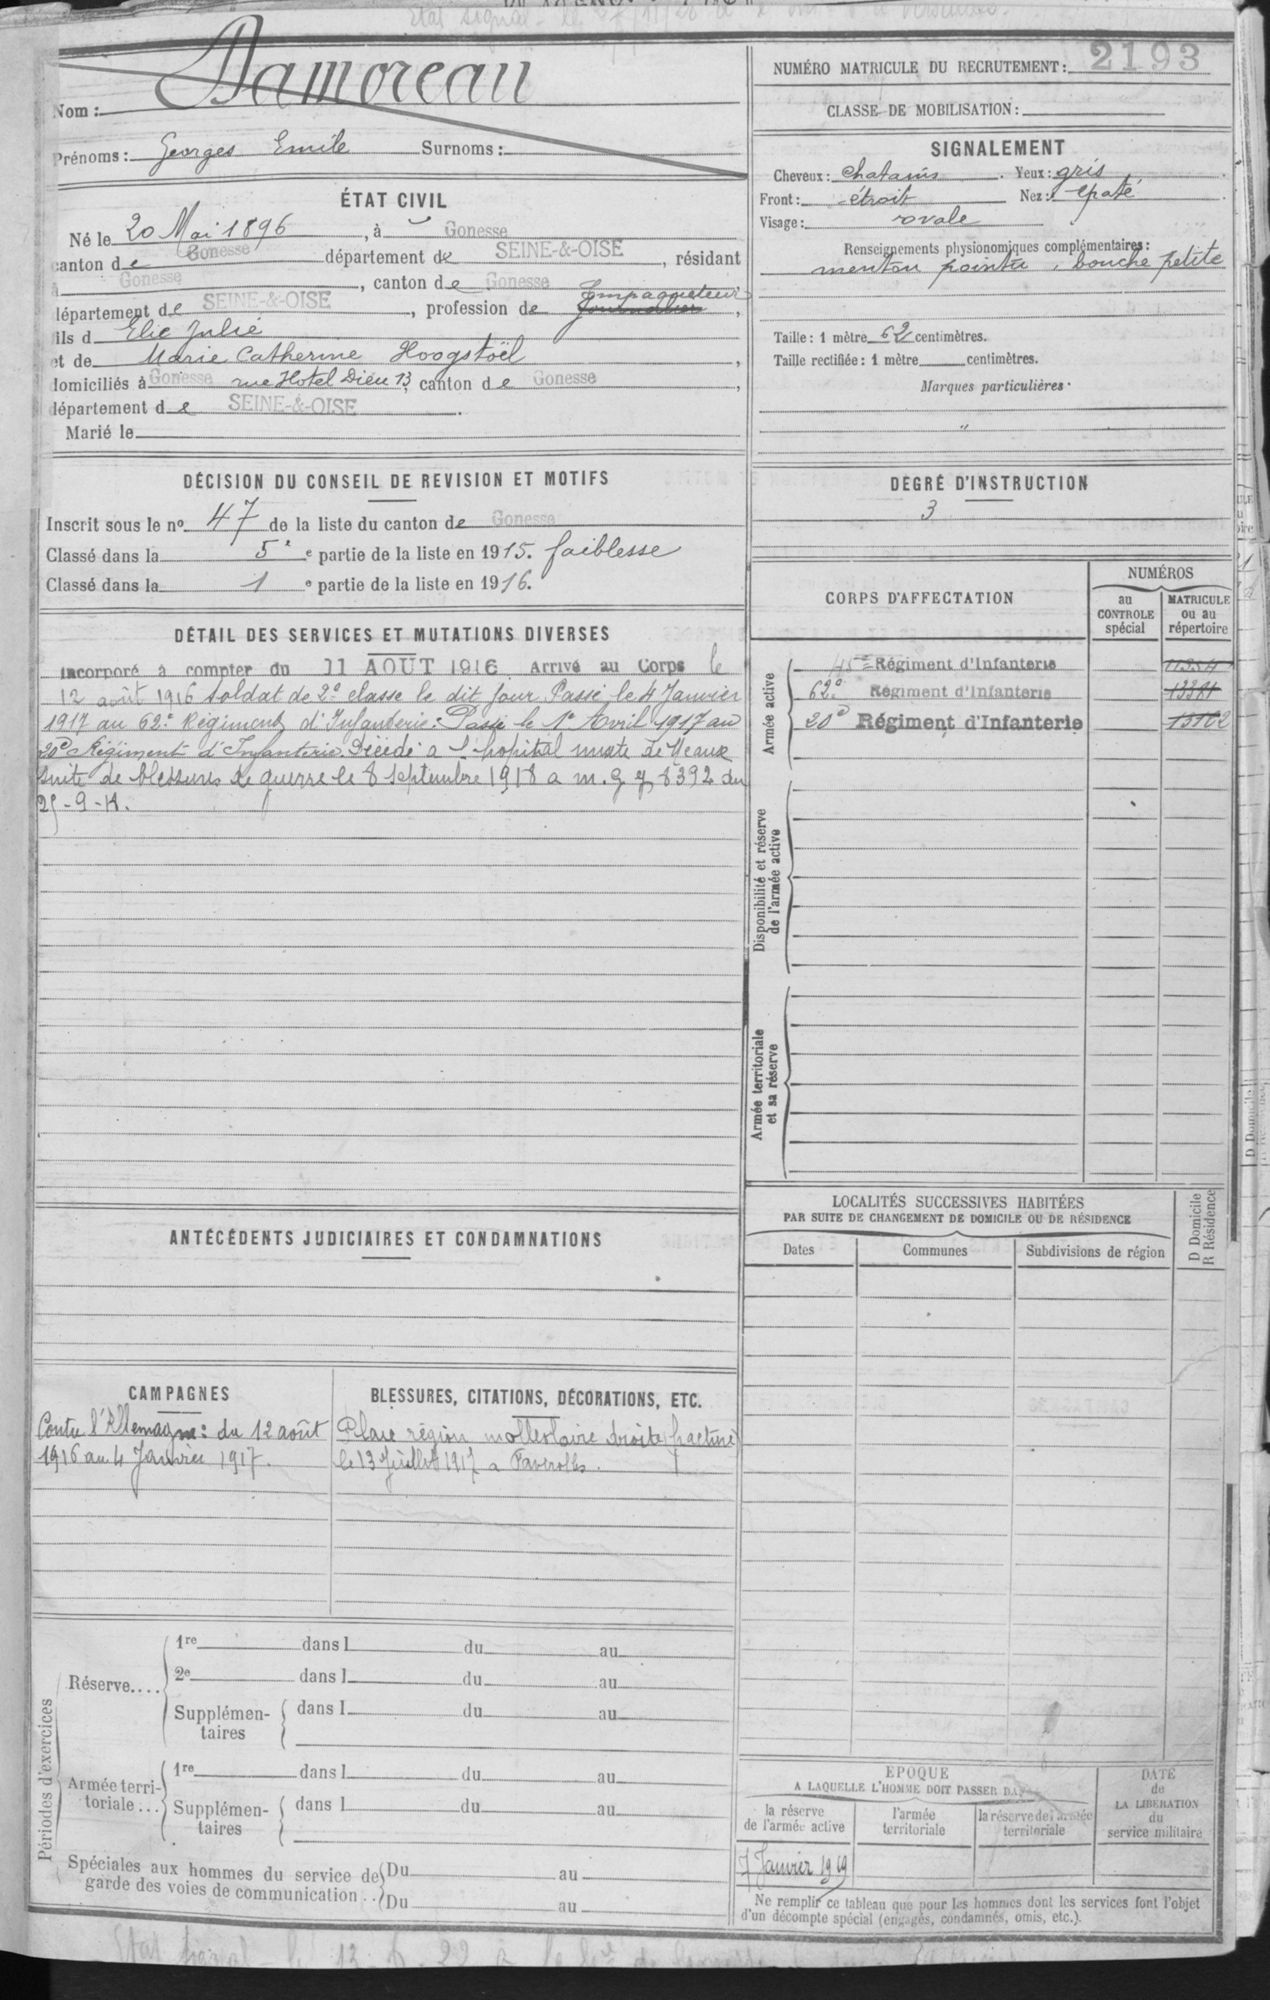 Nom : Damoreau
Prénoms : Georges Emile Surnoms :
ÉTAT CIVIL
Né le 20 Mai 1896, à Gonesse
canton de Gonesse département de SEINE-&-OISE, résidant
à Gonesse, canton de Gonesse
Empaqueteur
département de SEINE-&-OISE, profession de Journalier,
fils d Elie Julié
et de Marie Catherine Hoogstoël,
domiciliés à Gonesse rue Hotel Dieu 13, canton de Gonesse,
département de SEINE-&-OISE.
Marié le
DÉCISION DU CONSEIL DE REVISION ET MOTIFS
Inscrit sous le no 47 de la liste du canton de Gonesse
Classé dans la 5e e partie de la liste en 1915. faiblesse
Classé dans la 1 e partie de la liste en 1916.
DÉTAIL DES SERVICES ET MUTATIONS DIVERSES
Incorporé à compter du 11 AOUT 1916 Arrivé au Corps le
12 août 1916 soldat de 2e classe le dit jour Passé le 4 Janvier
1917 au 62e Régiment d'Infanterie. Passé le 1e Avril 1917 au
20e Régiment d'Infanterie. Décédé a l'hopital mixte de Meaux
suite de blessures de guerre le 8 septembre 1918 a m. g 8392 du
ANTÉCÉDENTS JUDICIAIRES ET CONDAMNATIONS
CAMPAGNES
Contre l'Allemagne : du 12 août
1916 au 4 Janvier 1917.
BLESSURES, CITATIONS, DÉCORATIONS, ETC.
Plaie région malléolaire droite (fracture)
le 13 Juillet 1917 a Faverolles.
Périodes d'exercices
Réserve....
1re dans l du au
2e dans l du au
Supplémentaires dans l du au
Armée territoriale...
1re dans l du au
Supplémentaires dans l du au
Spéciales aux hommes du service de Du au
garde des voies de communication .. Du au
NUMÉRO MATRICULE DU RECRUTEMENT : 2193
CLASSE DE MOBILISATION :
SIGNALEMENT
Cheveux : chatains. Yeux : gris
Front : étroit Nez : épaté
Visage : ovale
Renseignements physionomiques complémentaires :
menton pointu, bouche petite
Taille : 1 mètre 62 centimètres.
Taille rectifiée : 1 mètre centimètres.
Marques particulières.
"
DEGRÉ D'INSTRUCTION
3
CORPS D'AFFECTATION
NUMÉROS
au CONTROLE spécial
MATRICULE ou au répertoire
Armée active
45e Régiment d'Infanterie
62e Régiment d'Infanterie
20e Régiment d'Infanterie
Disponibilité et réserve
de l'armée active
Armée territoriale
et sa réserve
LOCALITÉS SUCCESSIVES HABITÉES
PAR SUITE DE CHANGEMENT DE DOMICILE OU DE RÉSIDENCE
D Domicile
R Résidence
Dates Communes Subdivisions de région
ÉPOQUE
A LAQUELLE L'HOMME DOIT PASSER DANS
la réserve de l'armée active
l'armée territoriale
la réserve de l'armée territoriale
DATE
de
LA LIBERATION
du
service militaire
Janvier 1919
Ne remplir ce tableau que pour les hommes dont les services font l'objet
d'un décompte spécial (engagés, condamnés, omis, etc.).